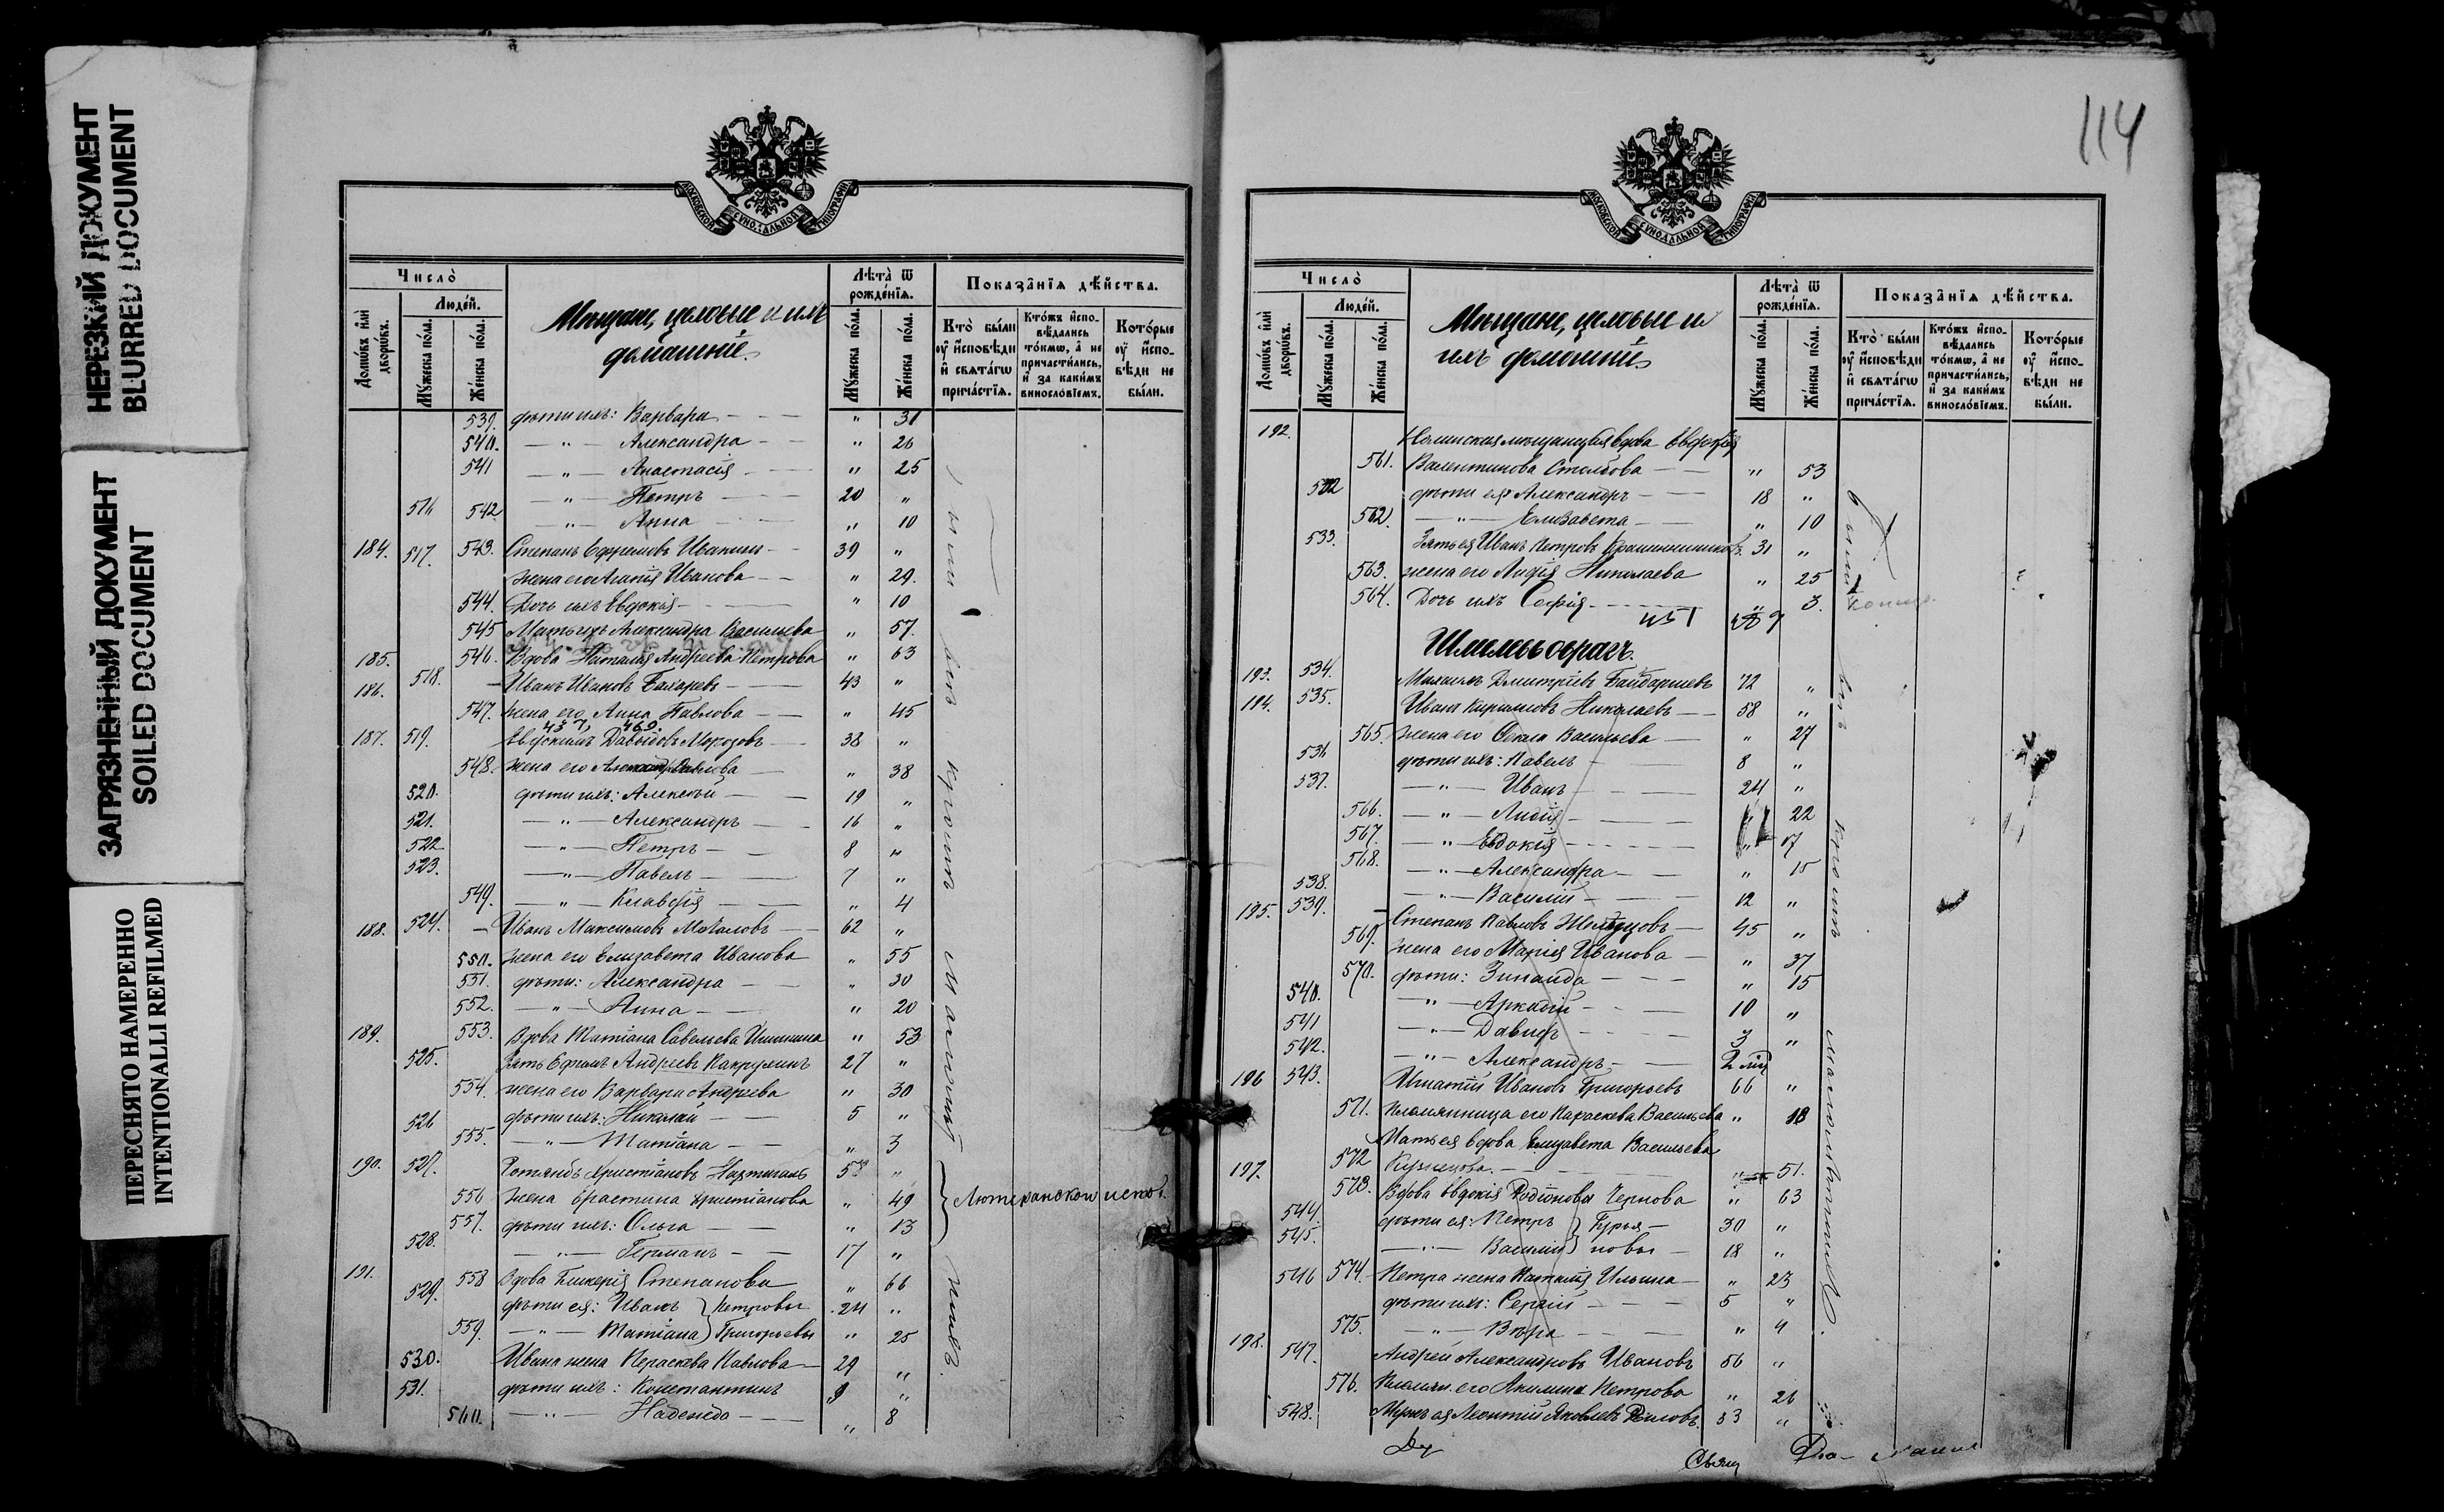 НЕРЕЗКИЙ ДОКУМЕНТ
BLURRED DOCUMENT
ЗАГРЯЗНЕННЫЙ ДОКУМЕНТ
SOILED DOCUMENT
ПЕРЕСНЯТО НАМЕРЕННО
INTENTIONALLI REFILMED
МОСКОВСКОЙ СѴНОДАЛЬНОЙ ТИПОГРАФІИ
Число̀
Людей.
Домѡвъ и҆лѝ дворѡвъ.
Мꙋжеска по́ла.
Же́нска по́ла.
Мѣщане, цеховые и ихъ
домашніе.
Лѣта̀ ѿ рожде́нїѧ.
Мꙋжеска по́ла.
Же́нска по́ла.
Показа̂нїѧ дѣ́йства.
Кто̀ бы́ли оу҆ и҆сповѣди и҆ свѧта́гѡ прича́стїѧ.
Кто́жъ и҆спо-вѣдались то́кмѡ, а҆ не причасти́лись, и҆ за каки́мъ виносло́вїемъ.
Кото́рые оу҆ и҆спо-вѣди не бы́ли.
539. дѣти ихъ: Варвара " 31
540. — " — Александра " 26
541 — " — Анастасія " 25
516 — " — Петръ 20 "
542 — " — Анна " 10
184. 517. 543. Степанъ Ефремовъ 39 "
жена его Агапія Иванова " 29.
544. Дочь ихъ Евдокія " 10
545 Мать ихъ Александра Васильева " 57.
185. 546. Вдова Наталія Андреева Петрова " 63
186. 518. Иванъ Ивановъ 43 "
547. жена его Анна Павлова " 45
457, 460.
187. 519. Евдокимъ Давыдовъ Морозовъ 38 "
548. жена его " 38
520. дѣти ихъ: Алексѣй 19 "
521. — " — Александръ 16 "
522 — " — Петръ 8 "
523. — " — Павелъ 7 "
549. — " — Клавдія " 4
188. 524. Иванъ Максимовъ 62 "
550. жена его Елизавета Иванова " 55
551. дѣти: Александра " 30
552. — " — Анна " 20
189. 553. Вдова Татіана Савельева " 53
525. Зять Ефимъ Андреевъ 27 "
554. жена его Варвара Андреева " 30
526 дѣти ихъ: Николай 5 "
555. — " — Татіана " 3
190. 527. Христіановъ 58 "
556 жена Христіанова " 49
557. дѣти ихъ: Ольга " 13
528. — " — Германъ 17 "
Лютеранской испов.
191. 558 Вдова Гликерія Степанова " 66
529. дѣти ея: Иванъ Петровы 24 "
559. — " — Татіана Григорьевы " 25
530. Ивана жена Параскева Павлова 29 "
531. дѣти ихъ: Константинъ 9 "
560. — " — Надежда " 8
114
МОСКОВСКОЙ СѴНОДАЛЬНОЙ ТИПОГРАФІИ
Число̀
Людей.
Домѡвъ и҆лѝ дворѡвъ.
Мꙋжеска по́ла.
Же́нска по́ла.
Мѣщане, цеховые и
ихъ домашніе
Лѣта̀ ѿ рожде́нїѧ.
Мꙋжеска по́ла.
Же́нска по́ла.
Показа̂нїѧ дѣ́йства.
Кто̀ бы́ли оу҆ и҆сповѣди и҆ свѧта́гѡ прича́стїѧ.
Кто́жъ и҆спо-вѣдались то́кмѡ, а҆ не причасти́лись, и҆ за каки́мъ виносло́вїемъ.
Кото́рые оу҆ и҆спо-вѣди не бы́ли.
192. мѣщанская вдова Евдокія
561. Валентинова Столбова " 53
532 дѣти ея Александръ 18 "
562. — " — Елизавета " 10
533. Зять ея Иванъ Петровъ Крашенинниковъ 31 "
563. жена его Лидія Николаева " 25
564. Дочь ихъ Софія " 3.
193. 534. Дмитріевъ 72 "
194. 535. Иванъ Николаевъ 58 "
565. жена его Ѳекла Васильева " 27
536 дѣти ихъ: Павелъ 8 "
537. — " — Иванъ 24 "
566. — " — Лидія " 22
567. — " — Евдокія " 17
568. — " — Александра " 15
538. — " — Василій 12 "
195. 539. Степанъ Павловъ 45 "
569. жена его Марія Иванова " 37
570. дѣти: Зинаида " 15
540. — " — Аркадій 10 "
541 — " — Давидъ 3 "
542. — " — Александръ
196 543. Игнатій Ивановъ Григорьевъ 66 "
571. Племянница его Параскева Васильева " 18
Мать ея вдова Елизавета Васильева
572 Кузнецова. " 51.
197. 573. Вдова Евдокія Родіонова Чернова " 63
544. дѣти ея: Петръ 30 "
545. — " — Василій 18 "
546 574. Петра жена Наталія Ильина " 23
дѣти ихъ: Сергій 5 "
575. — " — Вѣра " 4
198. 547. Андрей Александровъ Ивановъ 56 "
576. его Акилина Петрова " 26
548. Мужъ ея Леонтій Яковлевъ 33 "